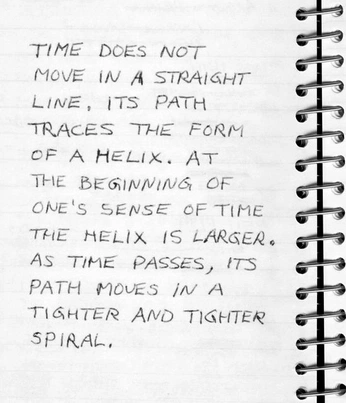 TIME DOES NOT
MOVE IN A STRAIGHT
LINE, ITS PATH
TRACES THE FORM
OF A HELIX. AT
THE BEGINNING OF
ONE'S SENSE OF TIME
THE HELIX IS LARGER.
AS TIME PASSES, ITS
PATH MOVES IN A
TIGHTER AND TIGHTER
SPIRAL.